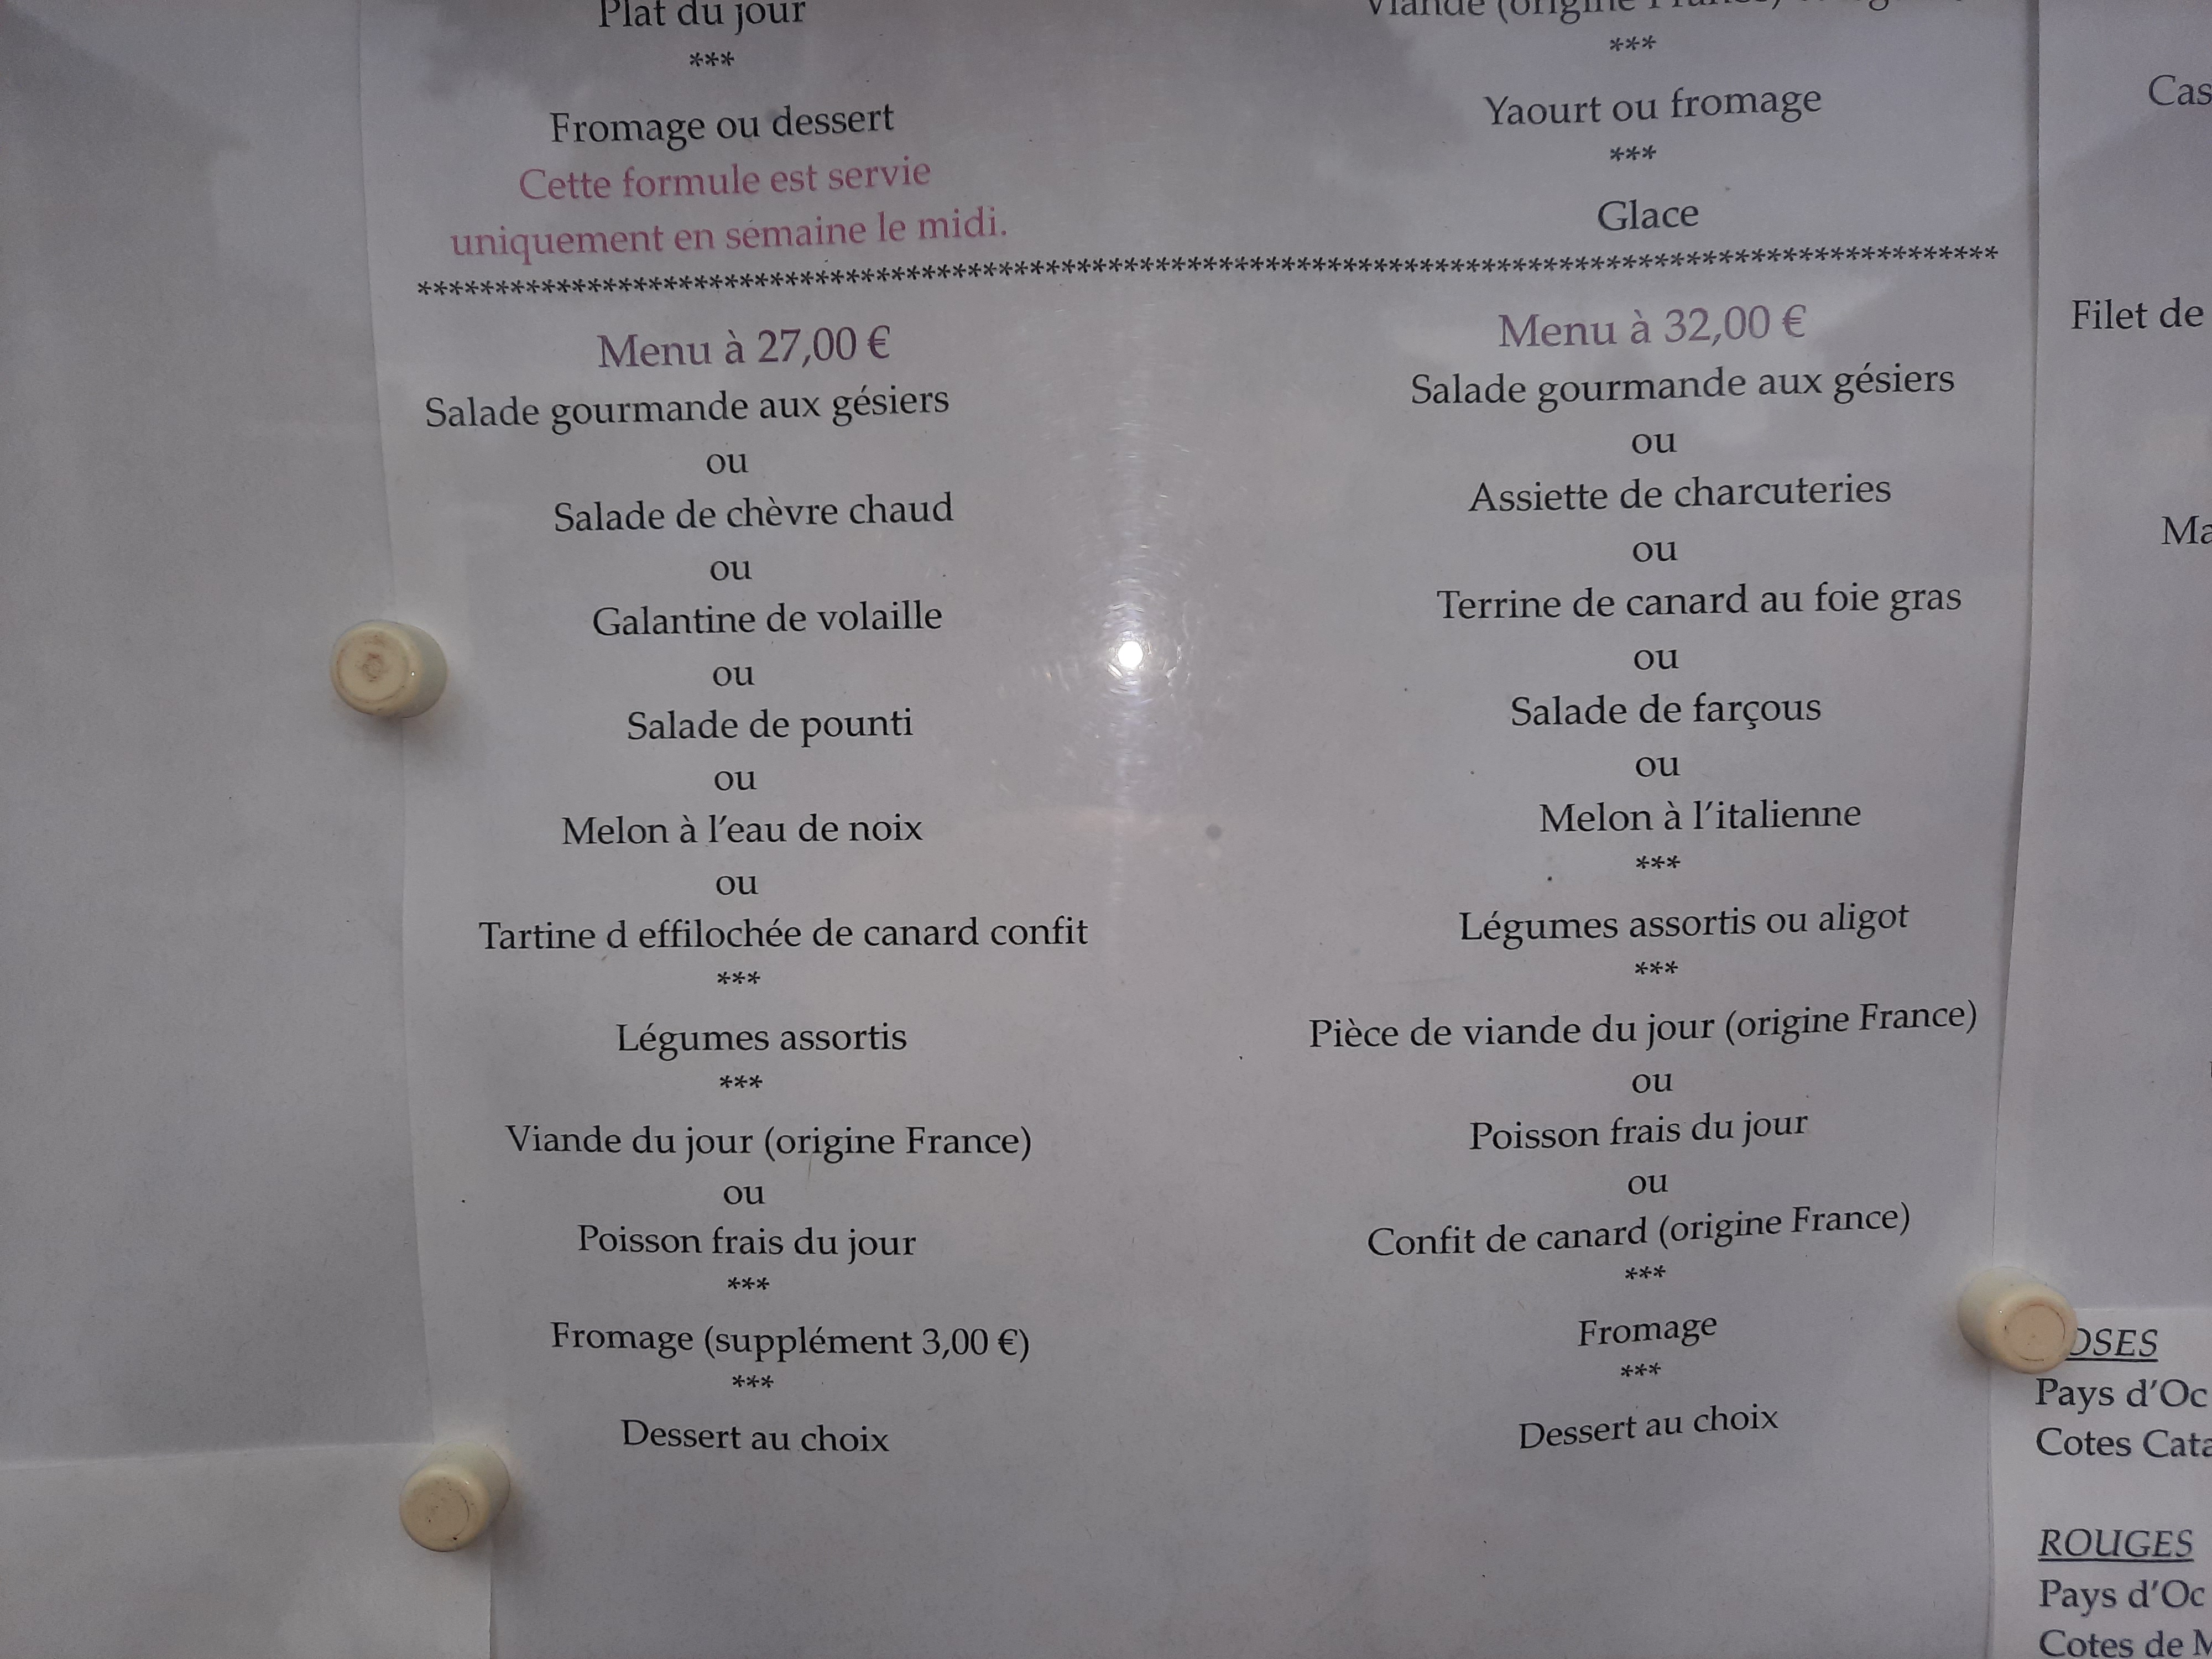 Plat du jour
***
Fromage ou dessert
Cette formule est servie
uniquement en semaine le midi.
Viande (origine France)
***
Yaourt ou fromage
***
Glace
****************************************************************************************************
Menu à 27,00 €
Salade gourmande aux gésiers
ou
Salade de chèvre chaud
ou
Galantine de volaille
ou
Salade de pounti
ou
Melon à l'eau de noix
ou
Tartine d effilochée de canard confit
***
Légumes assortis
***
Viande du jour (origine France)
ou
Poisson frais du jour
***
Fromage (supplément 3,00 €)
***
Dessert au choix
Menu à 32,00 €
Salade gourmande aux gésiers
ou
Assiette de charcuteries
ou
Terrine de canard au foie gras
ou
Salade de farçous
ou
Melon à l'italienne
***
Légumes assortis ou aligot
***
Pièce de viande du jour (origine France)
ou
Poisson frais du jour
ou
Confit de canard (origine France)
***
Fromage
***
Dessert au choix
Cas
Filet de
Ma
OSES
Pays d'Oc
Cotes Cata
ROUGES
Pays d'Oc
Cotes de M